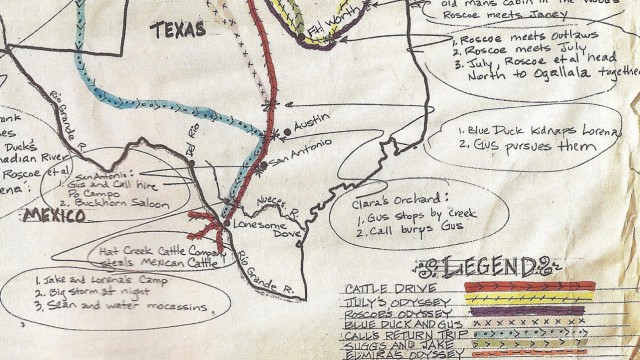 old mans cabin in the woods
Roscoe meets Janey
TEXAS
Ft. Worth
1. Roscoe meets Outlaws
2. Roscoe meets July
3. July, Roscoe et al head
North to Ogallala together
Rio Grande R.
Austin
San Antonio
1. Blue Duck kidnaps Lorena
2. Gus pursues them
Duck's
Canadian River
Roscoe et al
San Antonio:
1. Gus and Call hire
Po Campo
2. Buckhorn Saloon
MEXICO
Nueces R.
Lonesome
Dove
Clara's Orchard:
1. Gus stops by creek
2. Call burys Gus
Hat Creek Cattle Company
steals Mexican Cattle
Rio Grande R.
1. Jake and Lorena's Camp
2. Big storm at night
3. Sean and water mocassins
LEGEND
CATTLE DRIVE
JULY'S ODYSSEY
ROSCOE'S ODYSSEY
BLUE DUCK AND GUS
CALL'S RETURN TRIP
SUGGS AND JAKE
ELMIRA'S ODYSSEY